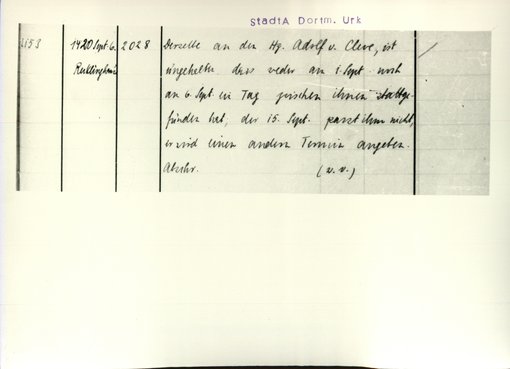 StadtA Dortm. Urk
3153 1420 Sept 6. 2028 Derselbe an den Hg. Adolf v. Cleve, ist
Recklinghausen ungehalten dass weder am 1. Sept. noch
am 6 Sept. ein Tag zwischen ihnen stattge-
funden hat, der 15. Sept. passt ihm nicht,
er wird einen andern Termin angeben.
Abschr. (u. v.)